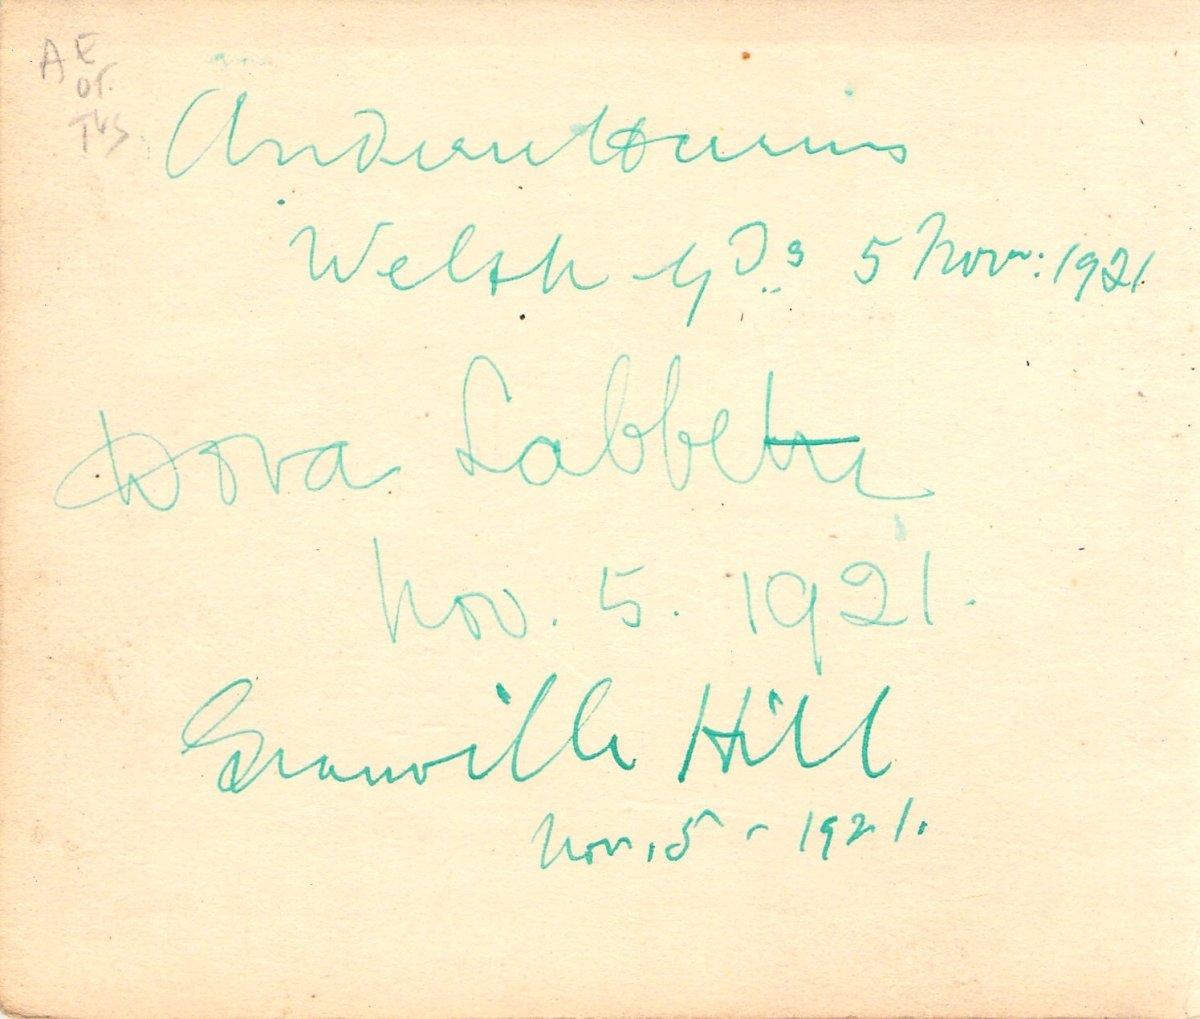 A E
or.
Andrew Harris
Welsh Gds 5 Nov: 1921
Dora Labbette
Nov. 5. 1921.
Granville Hill
Nov. 5 - 1921.